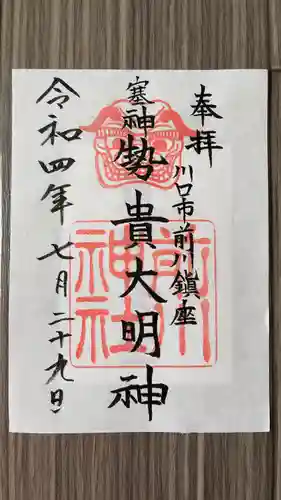 奉拝
川口市前川鎮座
塞神
勢貴大明神
令和四年七月二十九日
前川神社